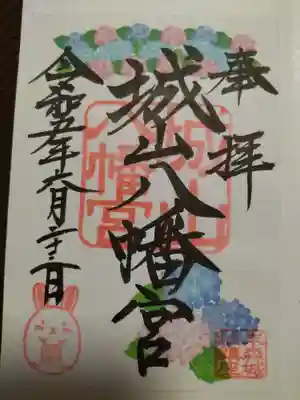 奉拝
城山八幡宮
令和五年六月二十二日
城山八幡宮
末森城